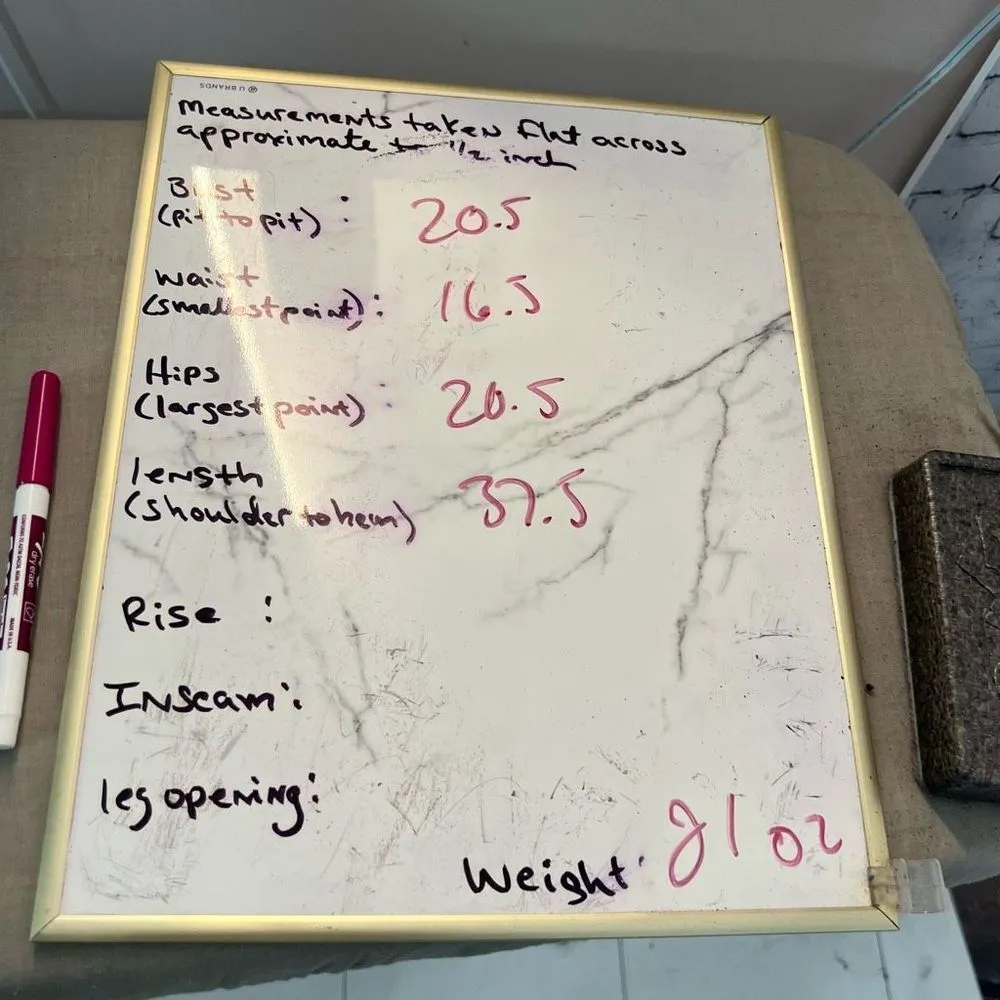 U BRANDS
Measurements taken flat across
approximate to 1/2 inch
Bust
(pit to pit) :
20.5
Waist
(smallest point) :
16.5
Hips
(largest point) :
20.5
length
(shoulder to hem)
37.5
Rise :
Inseam :
leg opening :
Weight :
21 oz
dry erase
MADE IN U.S.A.